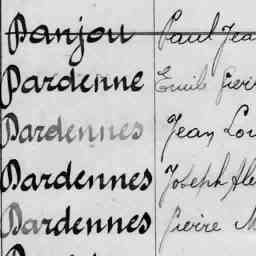 Danjou Paul Jea
Dardenne Emile Pierr
Dardennes Jean Lou
Dardennes Joseph Ale
Dardennes Pierre M